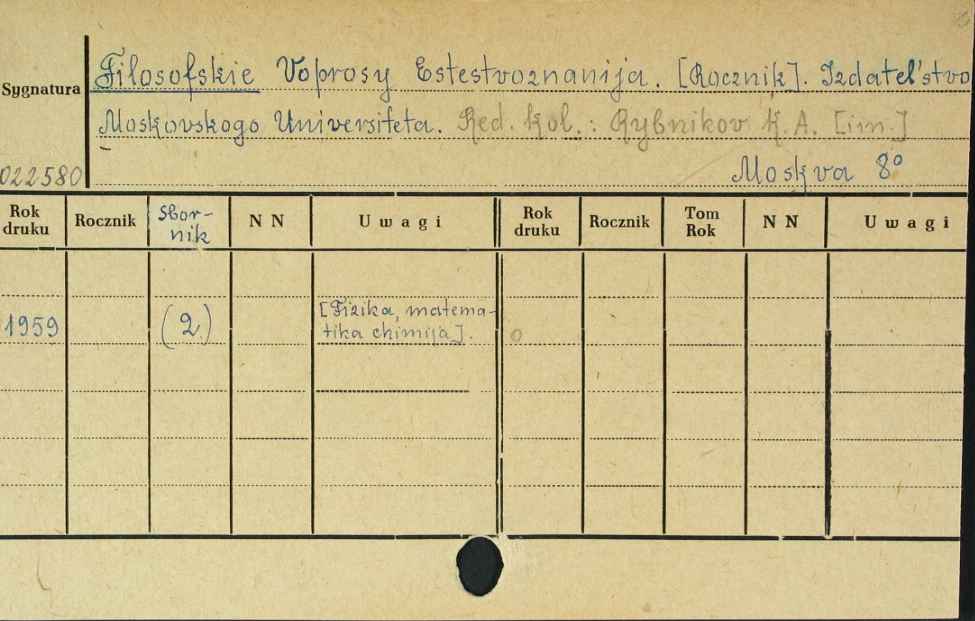 Filosofskie Voprosy Estestvoznanija. [Rocznik]. Izdatel'stvo
Sygnatura
Moskovskogo Universiteta. Red. kol.: Rybnikov K. A. [im.]
022580
Moskva 8°
Rok druku Rocznik Sbornik N N Uwagi Rok druku Rocznik Tom Rok N N Uwagi
1959 (2.) [Fizika, matema-
tika chimija].